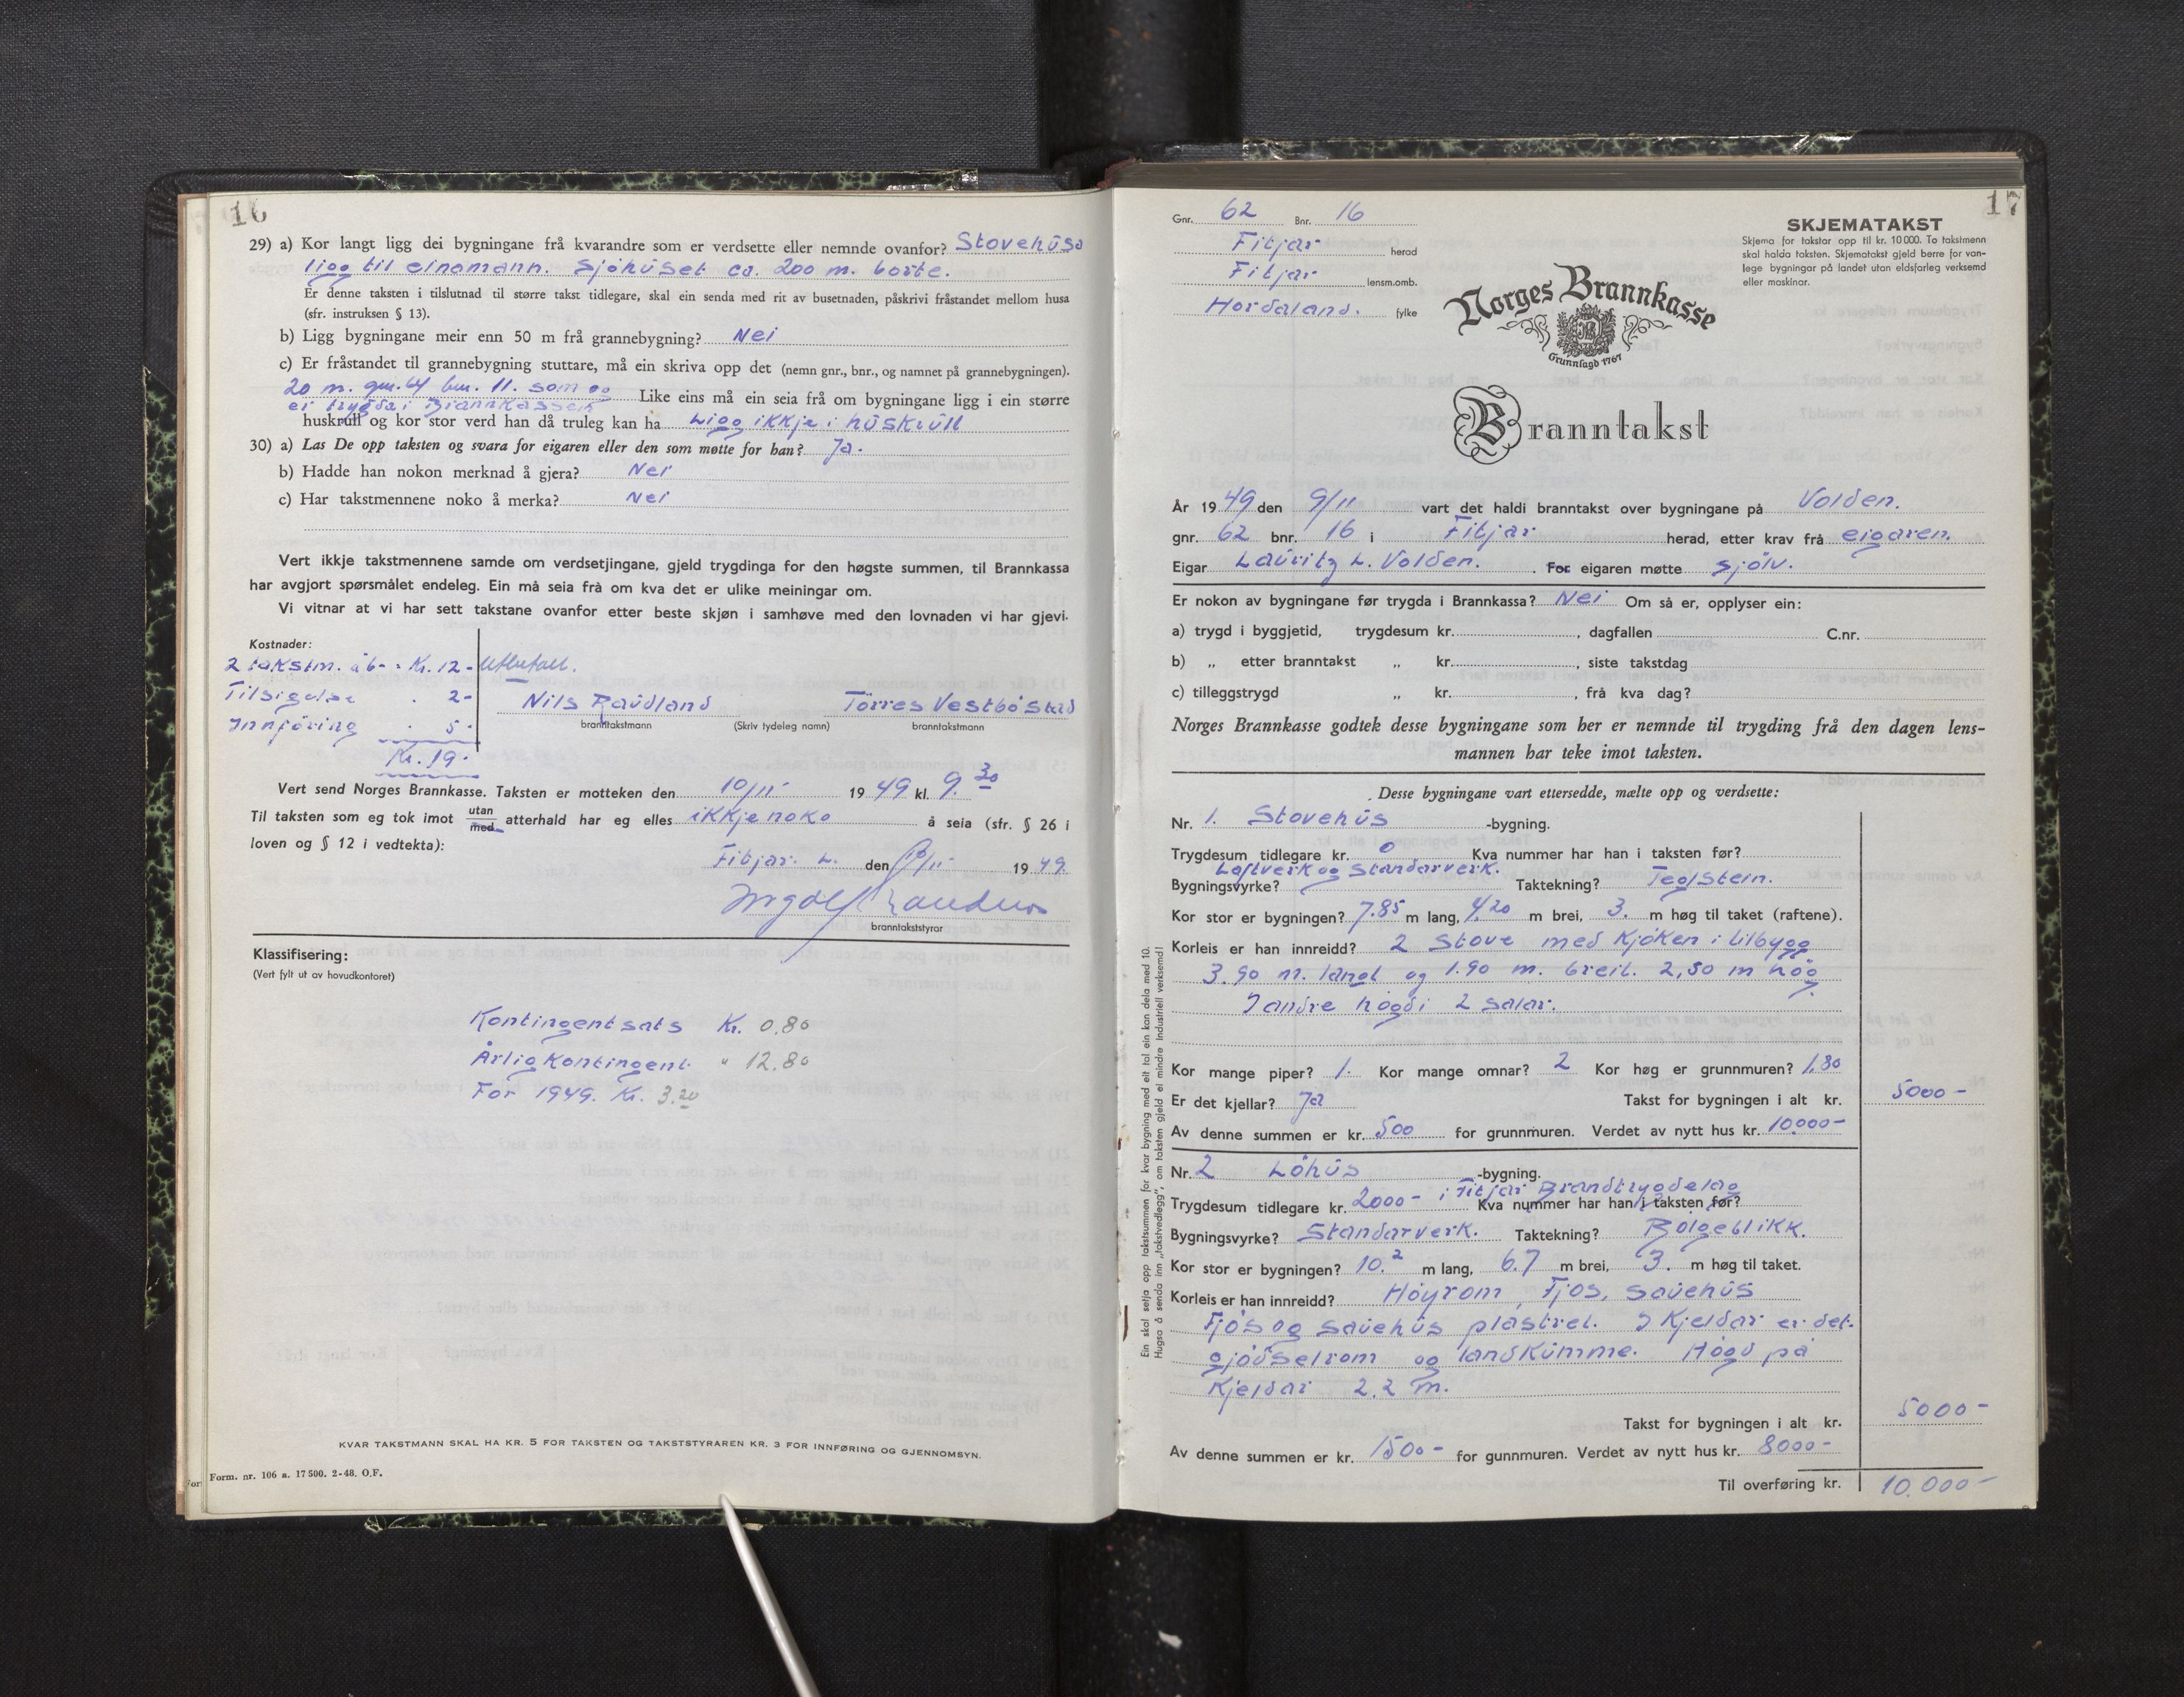 16
29) a) Kor langt ligg dei bygningane frå kvarandre som er verdsette eller nemnde ovanfor? Stovehúsa
ligg til einamann. Sjöhúset ca. 200 m. borte.
Er denne taksten i tilslutnad til større takst tidlegare, skal ein senda med rit av busetnaden, påskrivi fråstandet mellom husa
(sfr. instruksen § 13).
b) Ligg bygningane meir enn 50 m frå grannebygning? Nei
c) Er fråstandet til grannebygning stuttare, må ein skriva opp det (nemn gnr., bnr., og namnet på grannebygningen).
20 m. gnr. 64 bnr. 11. som og
ei trygda i Brannkassen Like eins må ein seia frå om bygningane ligg i ein større
huskrull og kor stor verd han då truleg kan ha Ligg ikkje i húskrúll
30) a) Las De opp taksten og svara for eigaren eller den som møtte for han? Ja.
b) Hadde han nokon merknad å gjera? Nei
c) Har takstmennene noko å merka? Nei
Vert ikkje takstmennene samde om verdsetjingane, gjeld trygdinga for den høgste summen, til Brannkassa
har avgjort spørsmålet endeleg. Ein må seia frå om kva det er ulike meiningar om.
Vi vitnar at vi har sett takstane ovanfor etter beste skjøn i samhøve med den lovnaden vi har gjevi.
Kostnader:
2 takstm. á 6- : Kr. 12 - Utbetalt.
Tilsigelse . 2-
Innföring . 5-
Kr. 19.-
Nils Raúdland Törres Vestböstad
branntakstmann (Skriv tydeleg namn) branntakstmann
Vert send Norges Brannkasse. Taksten er motteken den 10/11- 1949 kl. 9.30
Til taksten som eg tok imot utan/med atterhald har eg elles ikkje noko å seia (sfr. § 26 i
loven og § 12 i vedtekta):
Fitjar L. den 10/11- 1949.
Ingolf
branntakststyrar
Klassifisering:
(Vert fylt ut av hovudkontoret)
Kontingentsats Kr. 0.80
Årlig Kontingent " 12.80
For 1949. Kr. 3.20
KVAR TAKSTMANN SKAL HA KR. 5 FOR TAKSTEN OG TAKSTSTYRAREN KR. 3 FOR INNFØRING OG GJENNOMSYN.
Form. nr. 106 a. 17 500. 2-48. O.F.
17
Gnr. 62 Bnr. 16
Fitjar herad
Fitjar lensm.omb.
Hordaland. fylke
SKJEMATAKST
Skjema for takstar opp til kr. 10 000. To takstmenn
skal halda taksten. Skjematakst gjeld berre for van-
lege bygningar på landet utan eldsfarleg verksemd
eller maskinar.
Norges Brannkasse
Grunnlagd 1767
Branntakst
År 1949 den 9/11 vart det haldi branntakst over bygningane på Volden.
gnr. 62 bnr. 16 i Fitjar herad, etter krav frå eigaren.
Eigar Laúritz L. Volden. For eigaren møtte sjölv.
Er nokon av bygningane før trygda i Brannkassa? Nei Om så er, opplyser ein:
a) trygd i byggjetid, trygdesum kr. , dagfallen C.nr.
b) „ etter branntakst „ kr. , siste takstdag
c) tilleggstrygd „ kr. , frå kva dag?
Norges Brannkasse godtek desse bygningane som her er nemnde til trygding frå den dagen lens-
mannen har teke imot taksten.
Desse bygningane vart ettersedde, mælte opp og verdsette:
Nr. 1. Stovehús -bygning.
Trygdesum tidlegare kr. 0 Kva nummer har han i taksten før?
Bygningsvyrke? Laftverk og Standarverk. Taktekning? Teglstein.
Kor stor er bygningen? 7.85 m lang, 4.20 m brei, 3. m høg til taket (raftene).
Korleis er han innreidd? 2 Stove med Kjöken i tilbygg
3.90 m. langt og 1.90 m. breit. 2,50 m hög
I andre högdi 2 salar.
Kor mange piper? 1. Kor mange omnar? 2 Kor høg er grunnmuren? 1,80
Er det kjellar? Ja Takst for bygningen i alt kr. 5000-
Av denne summen er kr. 500 for grunnmuren. Verdet av nytt hus kr. 10.000-
Nr. 2 Löhús -bygning.
Trygdesum tidlegare kr. 2000- i Fitjar Brandtrygdelag Kva nummer har han i taksten før?
Bygningsvyrke? Standarverk. Taktekning? Bölgeblikk.
Kor stor er bygningen? 10.2 m lang, 6.7 m brei, 3. m høg til taket.
Korleis er han innreidd? Höyrom, Fjös, saúehús
Fjös og saúehús plastret. I Kjeldar er det
gjödselrom og landkúmme. Högd på
Kjeldar 2.2 m.
Takst for bygningen i alt kr. 5000-
Av denne summen er kr. 1500- for gunnmuren. Verdet av nytt hus kr. 8000-
Til overføring kr. 10.000-
Ein skal setja opp takstsummen for kvar bygning med eit tal ein kan dela med 10.
Hugsa å senda inn „takstvedlegg", om taksten gjeld ei mindre industriell verksemd!